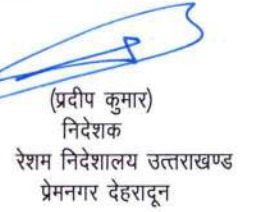 (प्रदीप कुमार)
निदेशक
रेशम निदेशालय उत्तराखण्ड
प्रेमनगर देहरादून